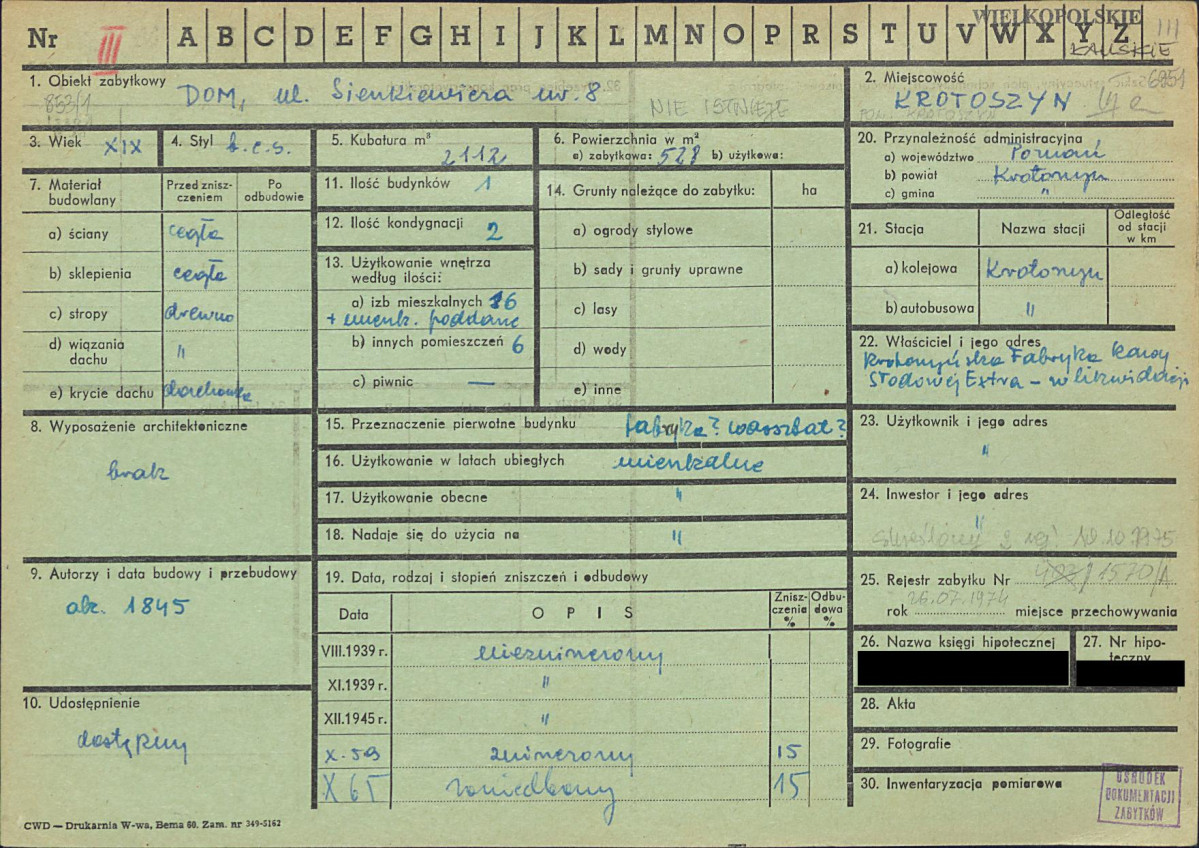 Nr III A B C D E F G H I J K L M N O P R S T U V W X Y Z
WIELKOPOLSKIE
III
1. Obiekt zabytkowy
853/1
DOM, ul. Sienkiewicza nr. 8
NIE ISTNIEJE
2. Miejscowość
6951
KROTOSZYN
3. Wiek XIX
4. Styl b.c.s.
5. Kubatura m³
2112
6. Powierzchnia w m²
a) zabytkowa: 528 b) użytkowa:
20. Przynależność administracyjna
a) województwo Poznań
b) powiat Krotoszyn
c) gmina "
7. Materiał budowlany
Przed znisz-
czeniem
Po
odbudowie
a) ściany cegła
b) sklepienia cegła
c) stropy drewno
d) wiązania
dachu "
e) krycie dachu dachówka
11. Ilość budynków 1
12. Ilość kondygnacji 2
13. Użytkowanie wnętrza
według ilości:
a) izb mieszkalnych 16
+ mieszk. poddasze
b) innych pomieszczeń 6
c) piwnic —
14. Grunty należące do zabytku: ha
a) ogrody stylowe
b) sady i grunty uprawne
c) lasy
d) wody
e) inne
21. Stacja
Nazwa stacji
Odległość
od stacji
w km
a) kolejowa Krotoszyn
b) autobusowa "
22. Właściciel i jego adres
Krotoszyńska Fabryka Kawy
Słodowej Extra – w likwidacji
8. Wyposażenie architektoniczne
brak
15. Przeznaczenie pierwotne budynku fabryka? warsztat?
16. Użytkowanie w latach ubiegłych mieszkalne
17. Użytkowanie obecne "
18. Nadaje się do użycia na "
23. Użytkownik i jego adres
"
24. Inwestor i jego adres
"
skreślony z rej. 10.10.1975
9. Autorzy i data budowy i przebudowy
ok. 1845
19. Data, rodzaj i stopień zniszczeń i odbudowy
Data
OPIS
Znisz-
czenia
%
Odbu-
dowa
%
VIII.1939 r. niezniszczony
XI.1939 r. "
XII.1945 r. "
X.59 zniszczony 15
X 65 zaniedbany 15
25. Rejestr zabytku Nr 1570/A
rok 26.07.1974 miejsce przechowywania
26. Nazwa księgi hipotecznej
27. Nr hipo-
teczny
10. Udostępnienie
dostępny
28. Akta
29. Fotografie
30. Inwentaryzacja pomiarowa
OŚRODEK
DOKUMENTACJI
ZABYTKÓW
CWD — Drukarnia W-wa, Bema 60. Zam. nr 349-5162